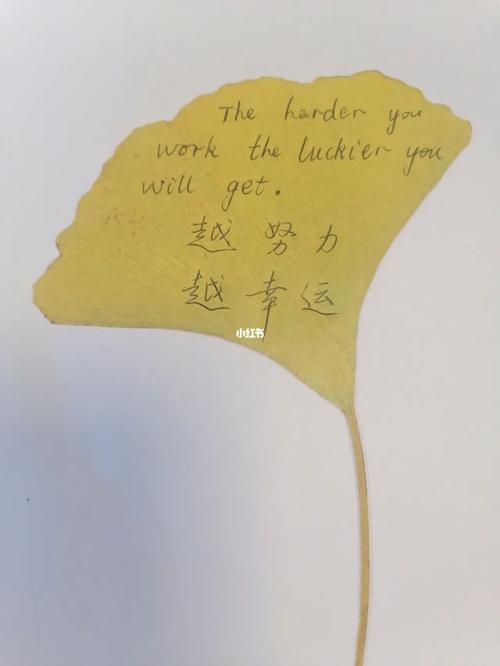 The harder you
work the luckier you
will get.
越努力
越幸运
小红书